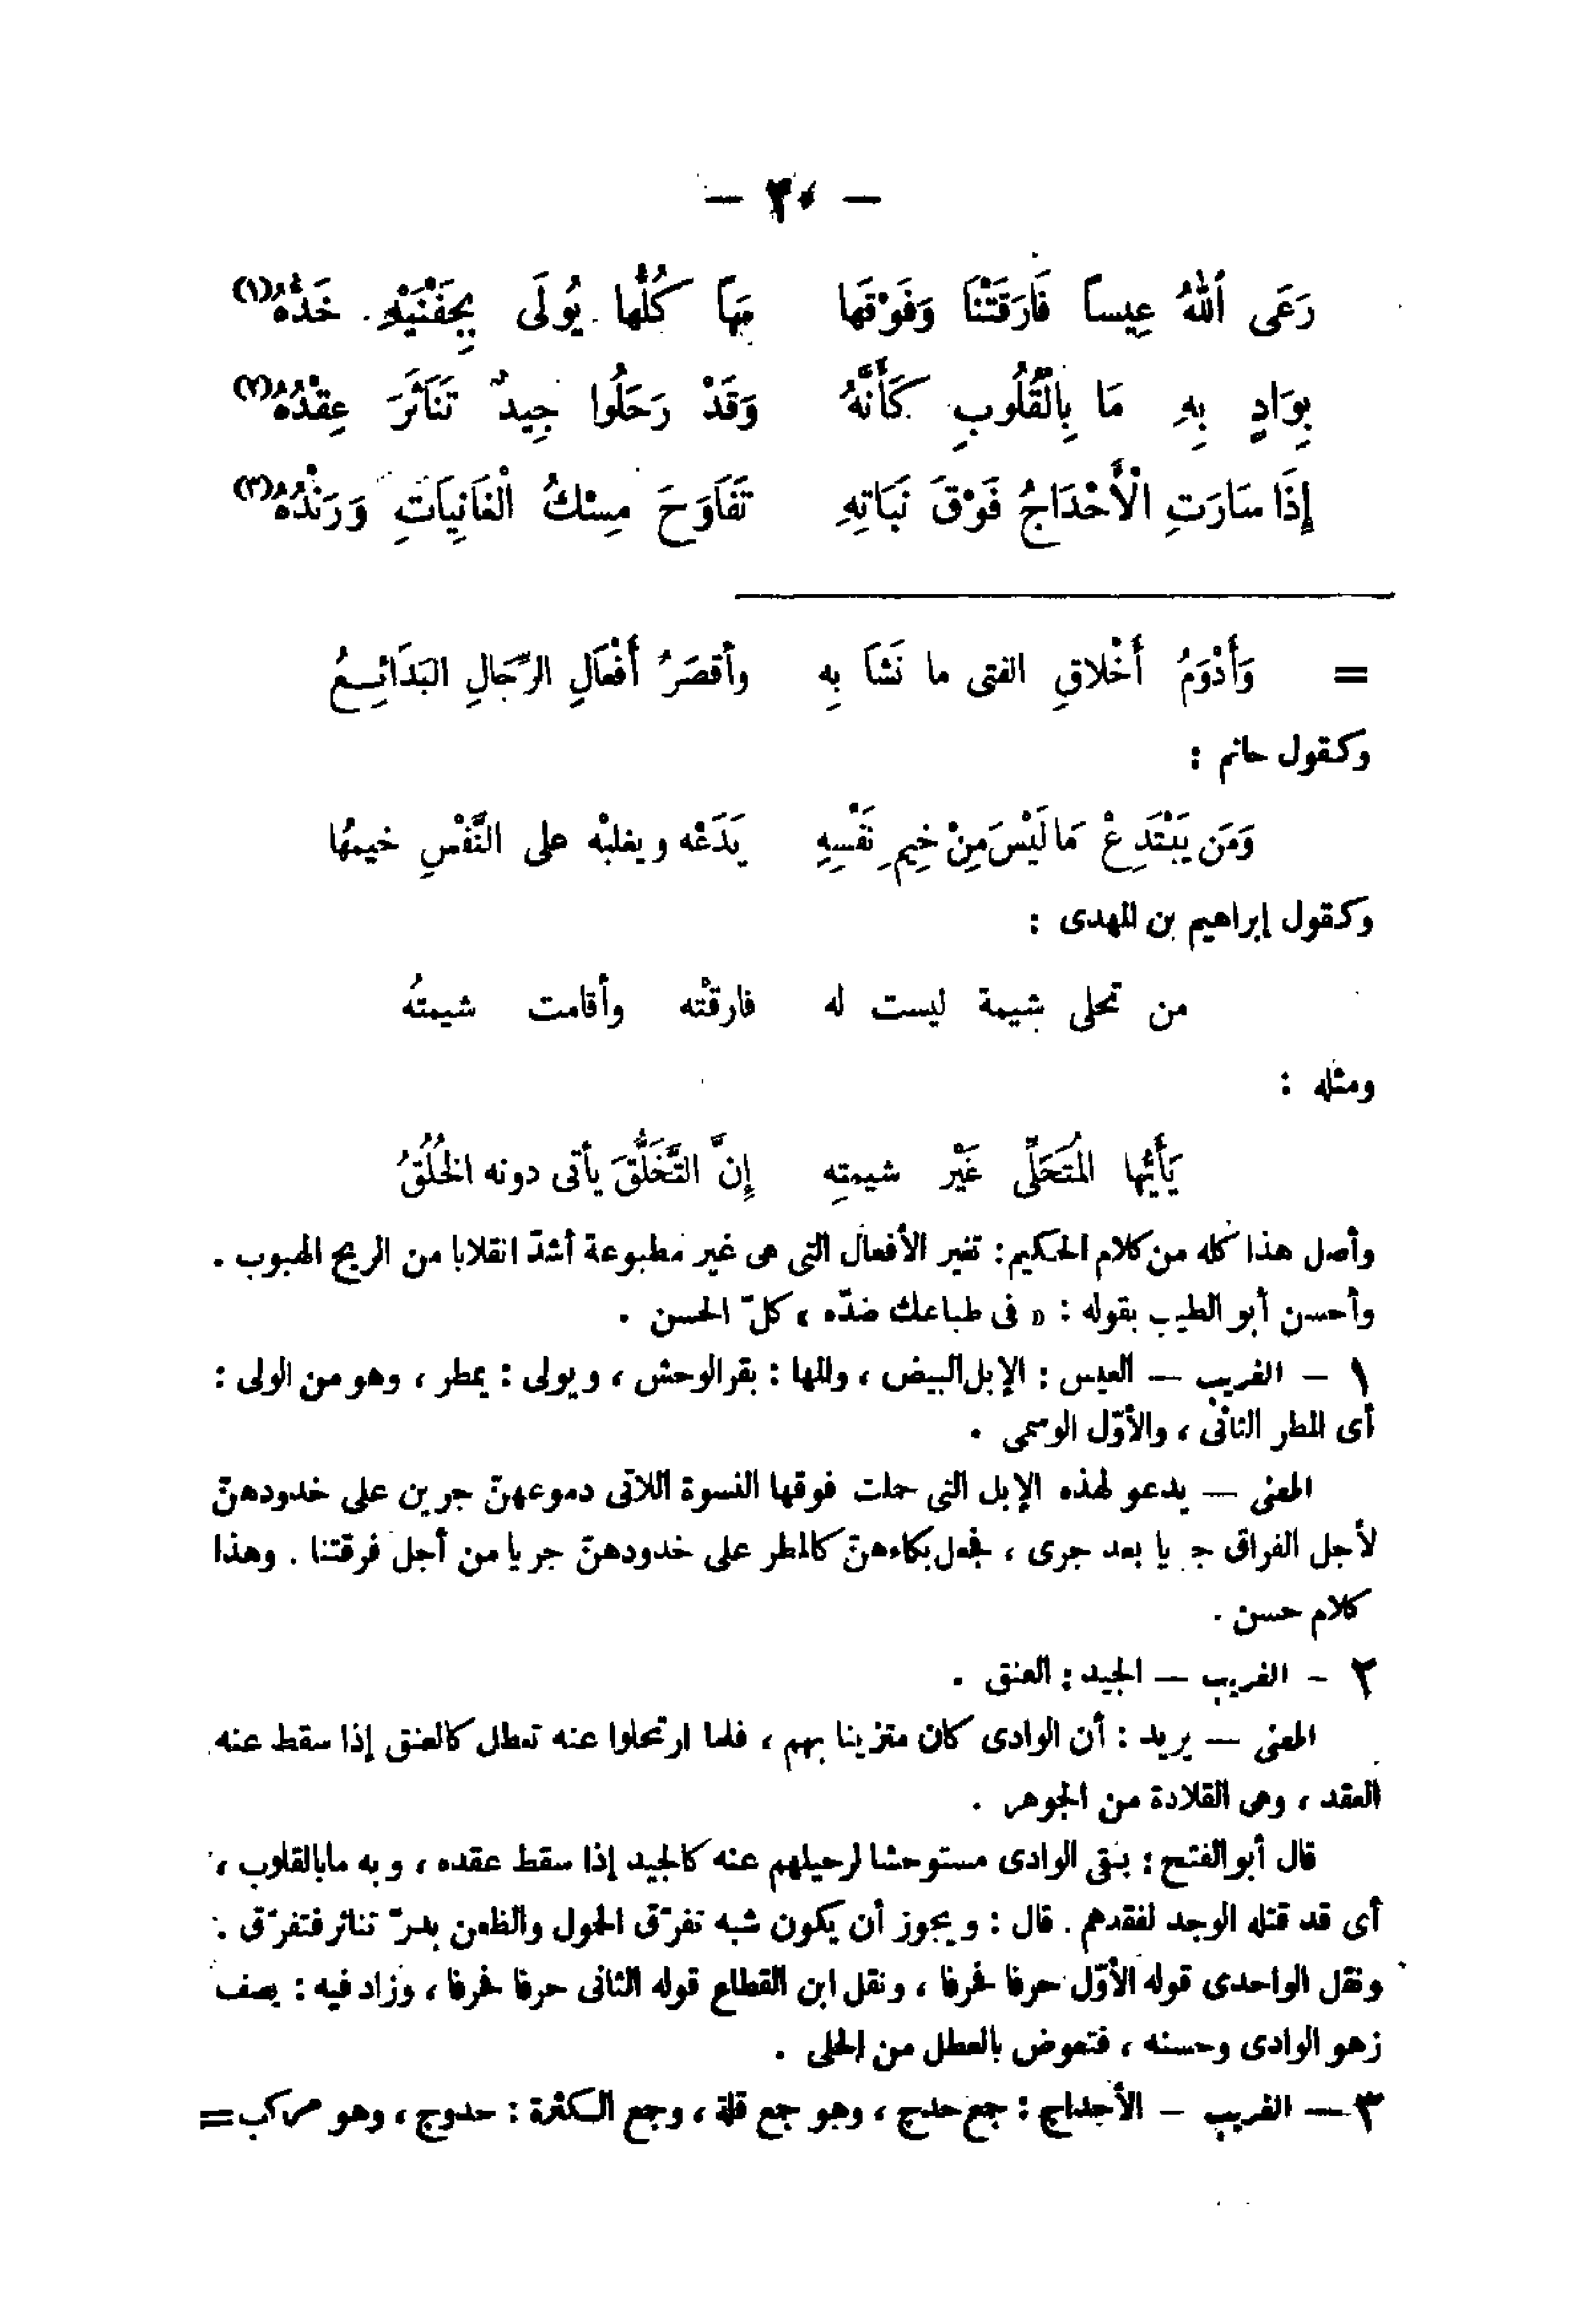 — ٢٠ —
رَعَى اللهُ عِيساً فَارَقَتْنَا وَفَوْقَهَا مَهاً كُلُّها يُولَى بِجَفْنَيْهِ خَدُّهُ (١)
بِوَادٍ بِهِ مَا بِالْقُلُوبِ كَأَنَّهُ وَقَدْ رَحَلُوا جِيدٌ تَنَاثَرَ عِقْدُهُ (٢)
إِذَا سَارَتِ الْأَحْدَاجُ فَوْقَ نَبَاتِهِ تَفَاوَحَ مِسْكُ الْغَانِيَاتِ وَرَنْدُهُ (٣)
= وَأَدْوَمُ أَخْلاقِ الفتى ما نَشَا بِه وأقصَرُ أَفْعَالِ الرِّجَالِ البَدَائِعُ
وكقول حاتم :
وَمَن يَبْتَدِعْ مَا لَيْسَ مِنْ خِيمِ نَفْسِهِ يَدَعْه ويغلبْه على النَّفْسِ خيمُها
وكقول إبراهيم بن المهدى :
من تحلى بشيمة ليست له فارقتْه وأقامت شيمتُه
ومثله :
يَأَيُّها المُتَحَلِّى غَيْر شيمتِه إِنَّ التَّخَلُّقَ يأتى دونه الخُلُقُ
وأصل هذا كله من كلام الحكيم : تغير الأفعال التى هى غير مطبوعة أشدّ انقلابا من الريح الهبوب .
وأحسن أبو الطيب بقوله : « فى طباعك ضدّه » كلّ الحسن .
١ – الغريب — العيس : الإبل البيض ، والمها : بقر الوحش ، ويولى : يمطر ، وهو من الولى :
أى المطر الثانى ، والأوّل الوسمى .
المعنى — يدعو لهذه الإبل التى حملت فوقها النسوة اللاتى دموعهنّ جرين على خدودهنّ
لأجل الفراق جريا بعد جرى ، فجعل بكاءهنّ كالمطر على خدودهنّ جريا من أجل فرقتنا . وهذا
كلام حسن .
٢ – الغريب — الجيد : العنق .
المعنى — يريد : أن الوادى كان متزينا بهم ، فلما ارتحلوا عنه تعطل كالعنق إذا سقط عنه
العقد ، وهى القلادة من الجوهر .
قال أبو الفتح : بقى الوادى مستوحشا لرحيلهم عنه كالجيد إذا سقط عقده ، وبه ما بالقلوب ،
أى قد قتله الوجد لفقدهم . قال : ويجوز أن يكون شبه تفرّق الحمول والظعن بدرّ تناثر فتفرّق .
ونقل الواحدى قوله الأوّل حرفا فحرفا ، ونقل ابن القطاع قوله الثانى حرفا فحرفا ، وزاد فيه : يصف
زهو الوادى وحسنه ، فتعوض بالعطل من الحلى .
٣ — الغريب – الأحداج : جمع حدج ، وهو جمع قلة ، وجمع الكثرة : حدوج ، وهو مركب =